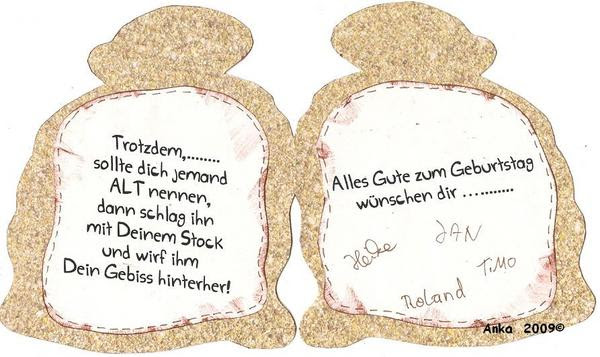 Trotzdem,........
sollte dich jemand
ALT nennen,
dann schlag ihn
mit Deinem Stock
und wirf ihm
Dein Gebiss hinterher!
Alles Gute zum Geburtstag
wünschen dir ............
Heike
JAN
TiMO
Roland
Anka 2009©